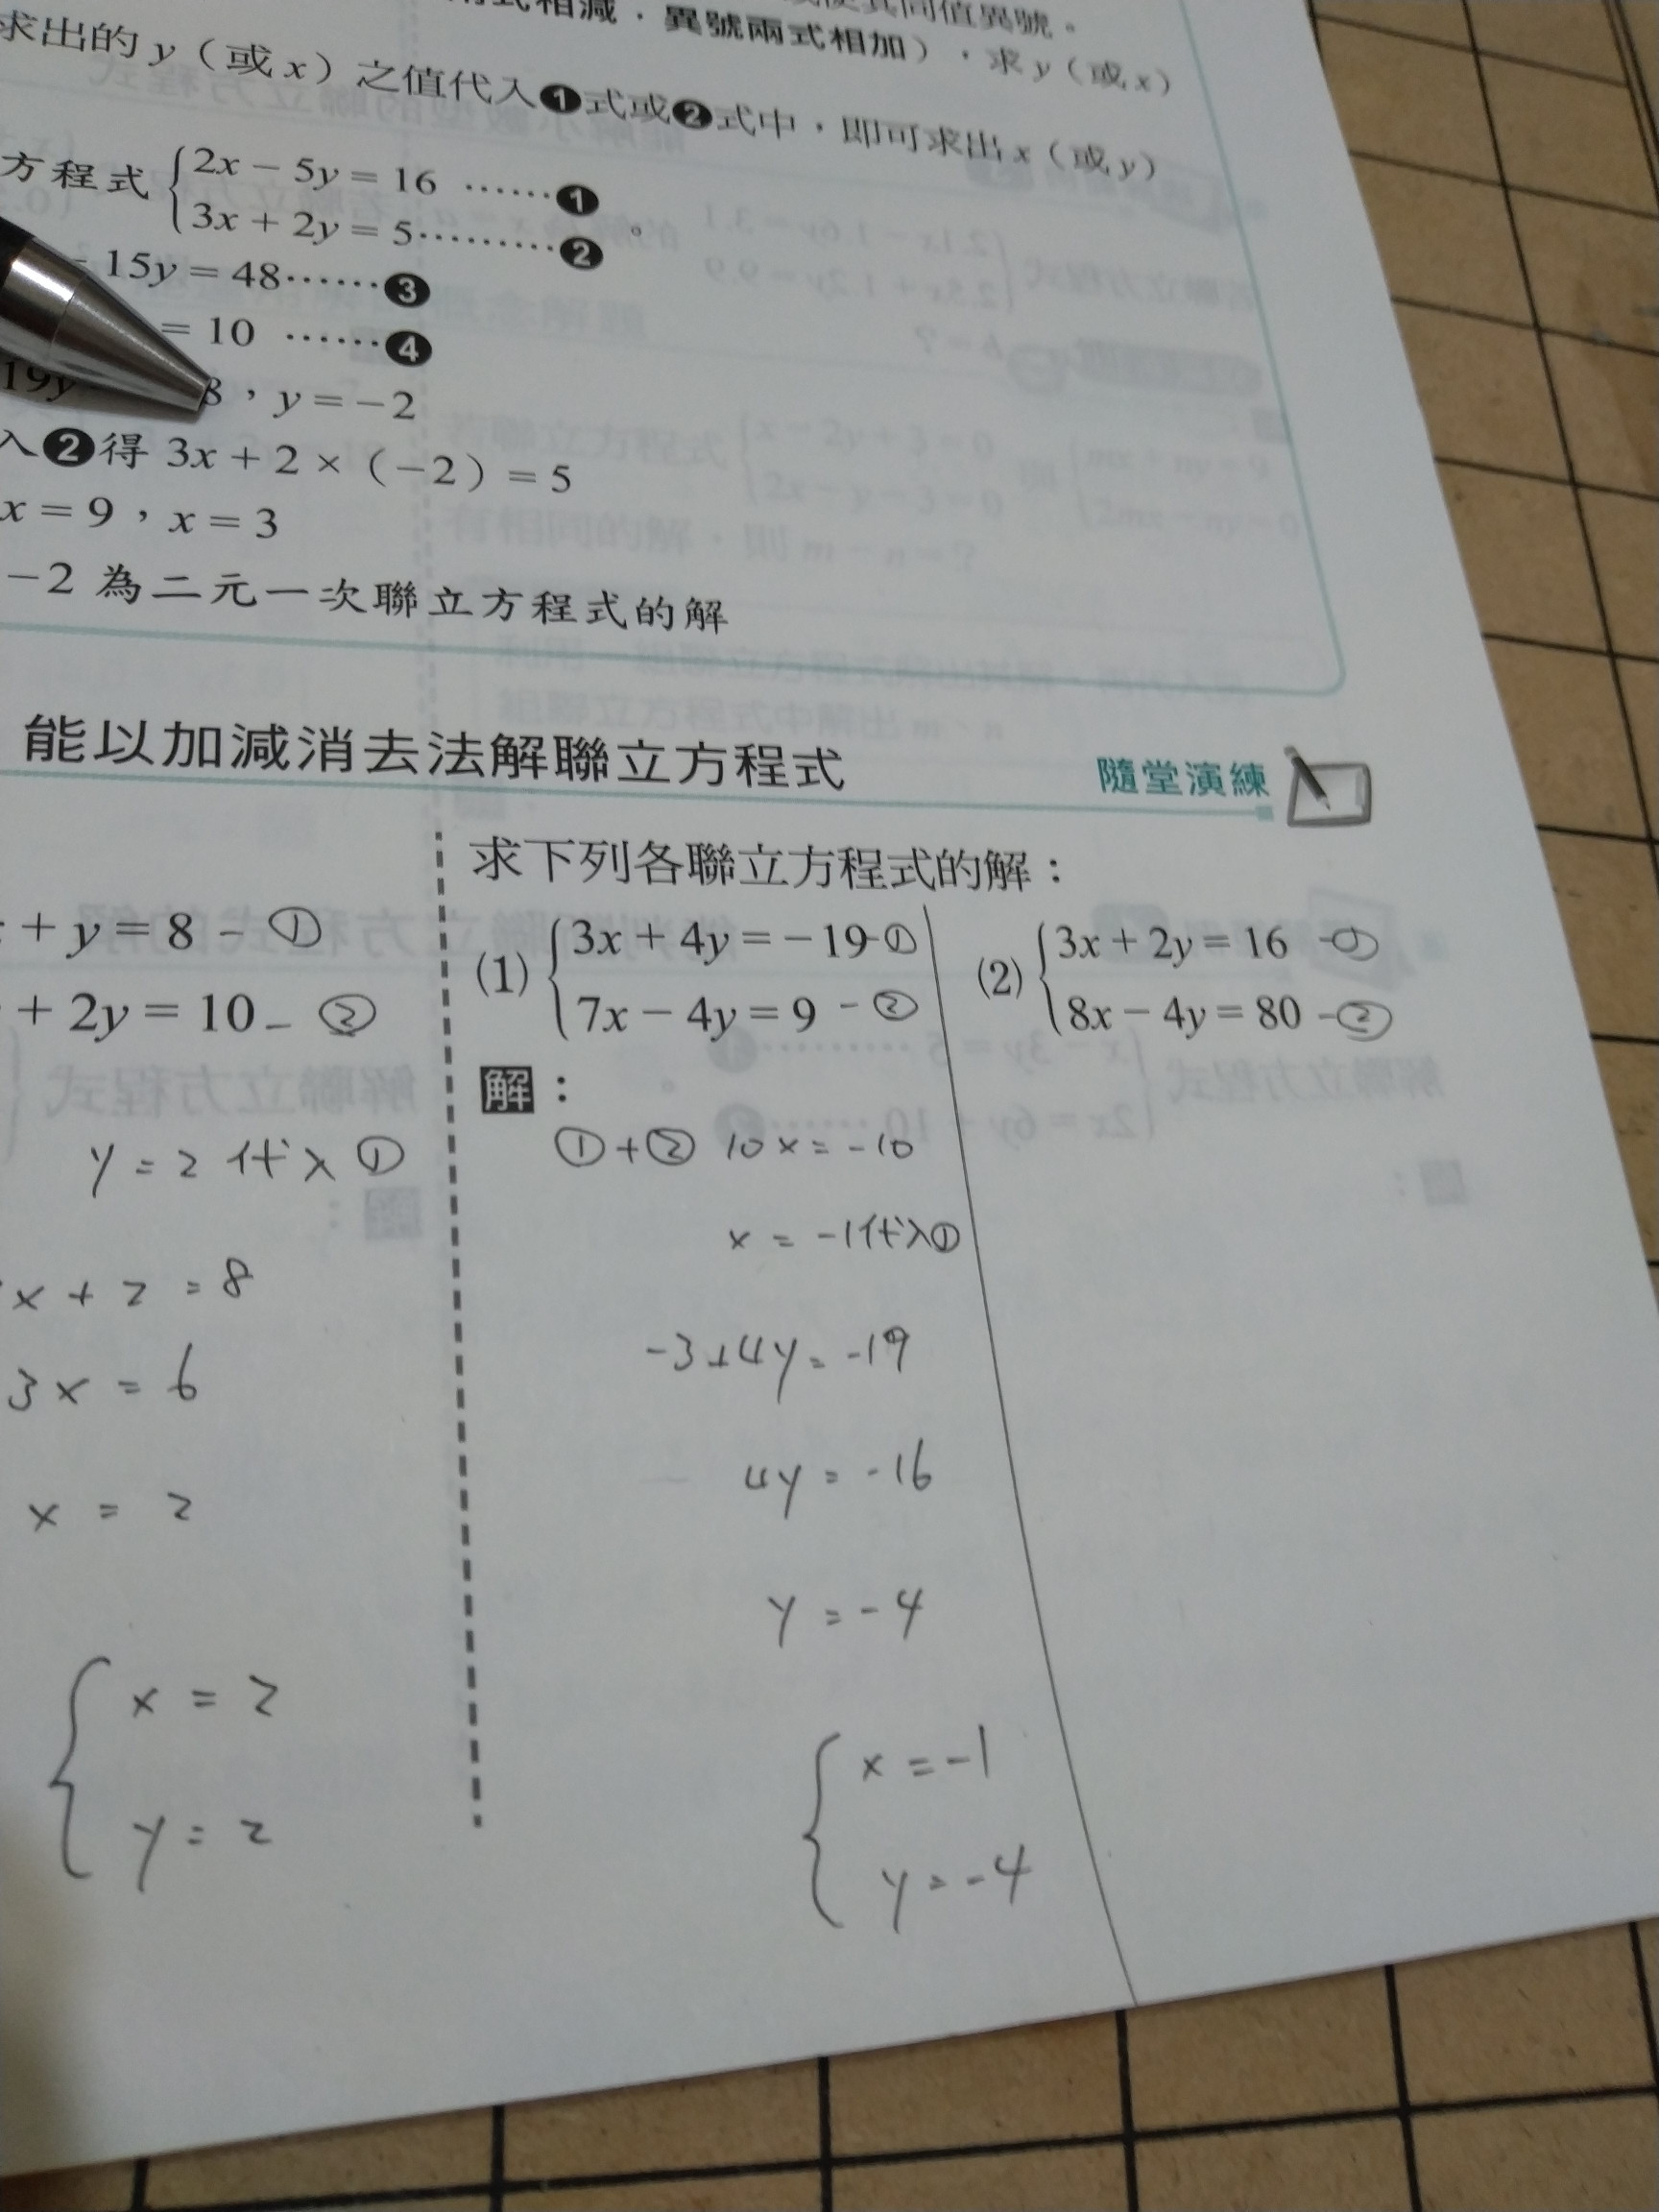 式相減，異號兩式相加），求 y（或 x）
求出的 y（或 x）之值代入❶式或❷式中，即可求出 x（或 y）
方程式 { 2x − 5y = 16 ……❶
3x + 2y = 5………❷ 。
15y = 48……❸
= 10 ……❹
19y 8，y = −2
入❷得 3x + 2 ×（−2）= 5
x = 9，x = 3
−2 為二元一次聯立方程式的解
能以加減消去法解聯立方程式
隨堂演練
+ y = 8 - ①
+ 2y = 10 - ②
y = 2 代入 ①
x + 2 = 8
3x = 6
x = 2
{ x = 2
y = 2
求下列各聯立方程式的解：
(1) { 3x + 4y = −19 - ①
7x − 4y = 9 - ②
(2) { 3x + 2y = 16 - ①
8x − 4y = 80 - ②
解：
①+② 10x = -10
x = -1代入①
-3+4y = -19
4y = -16
y = -4
{ x = -1
y = -4